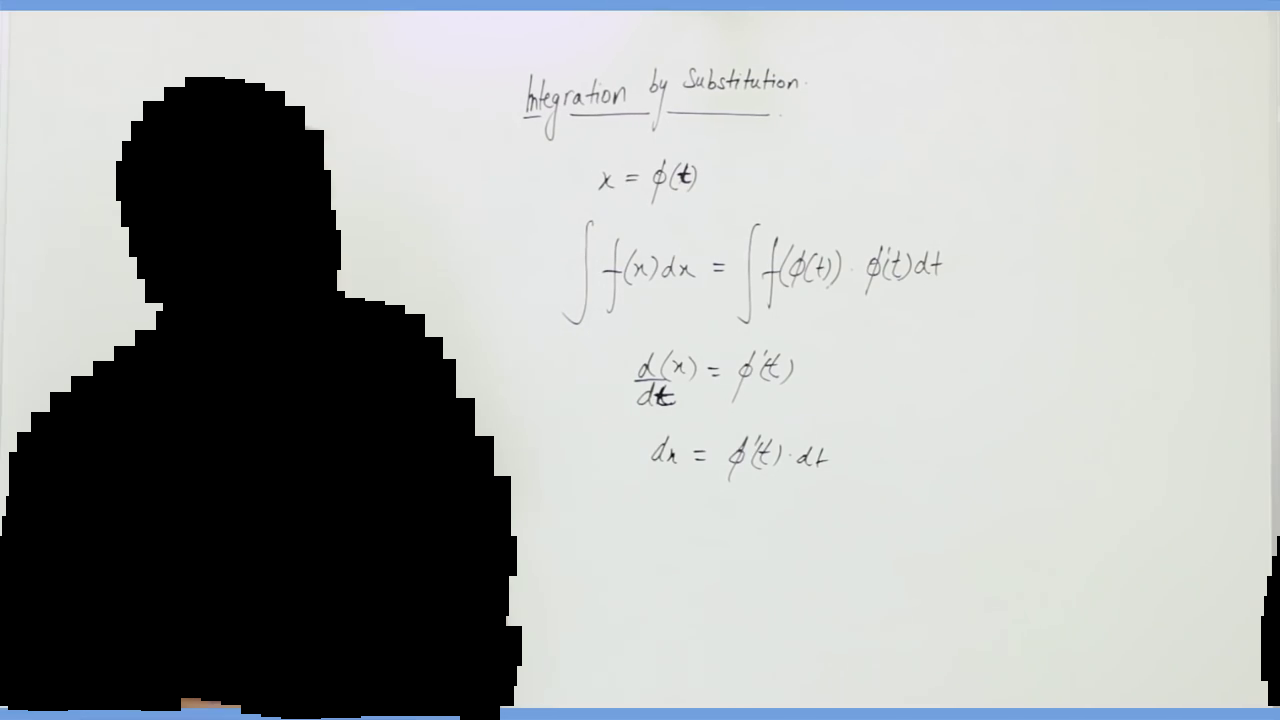 Integration by Substitution.
x = ϕ(t)
∫ f(x) dx = ∫ f(ϕ(t)) · ϕ'(t) dt
d/dt (x) = ϕ'(t)
dx = ϕ'(t) · dt